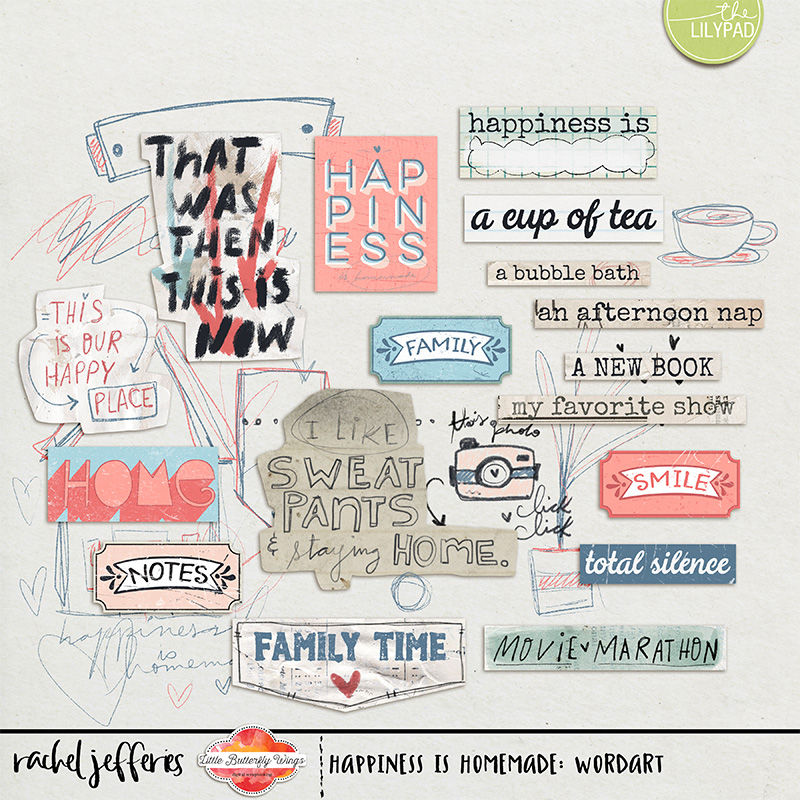 the
LILYPAD
THAT
WAS
THEN
THIS IS
NOW
HAP
PIN
ESS
is homemade
happiness is
a cup of tea
a bubble bath
an afternoon nap
A NEW BOOK
my favorite show
THIS
IS OUR
HAPPY
PLACE
FAMILY
I LIKE
SWEAT
PANTS
& staying HOME.
this
photo
click
click
HOME
SMILE
NOTES
total silence
happiness
is
homema
FAMILY TIME
MOVIE MARATHON
rachel jefferies
Little Butterfly Wings
digital scrapbooking
HAPPINESS IS HOMEMADE: WORDART